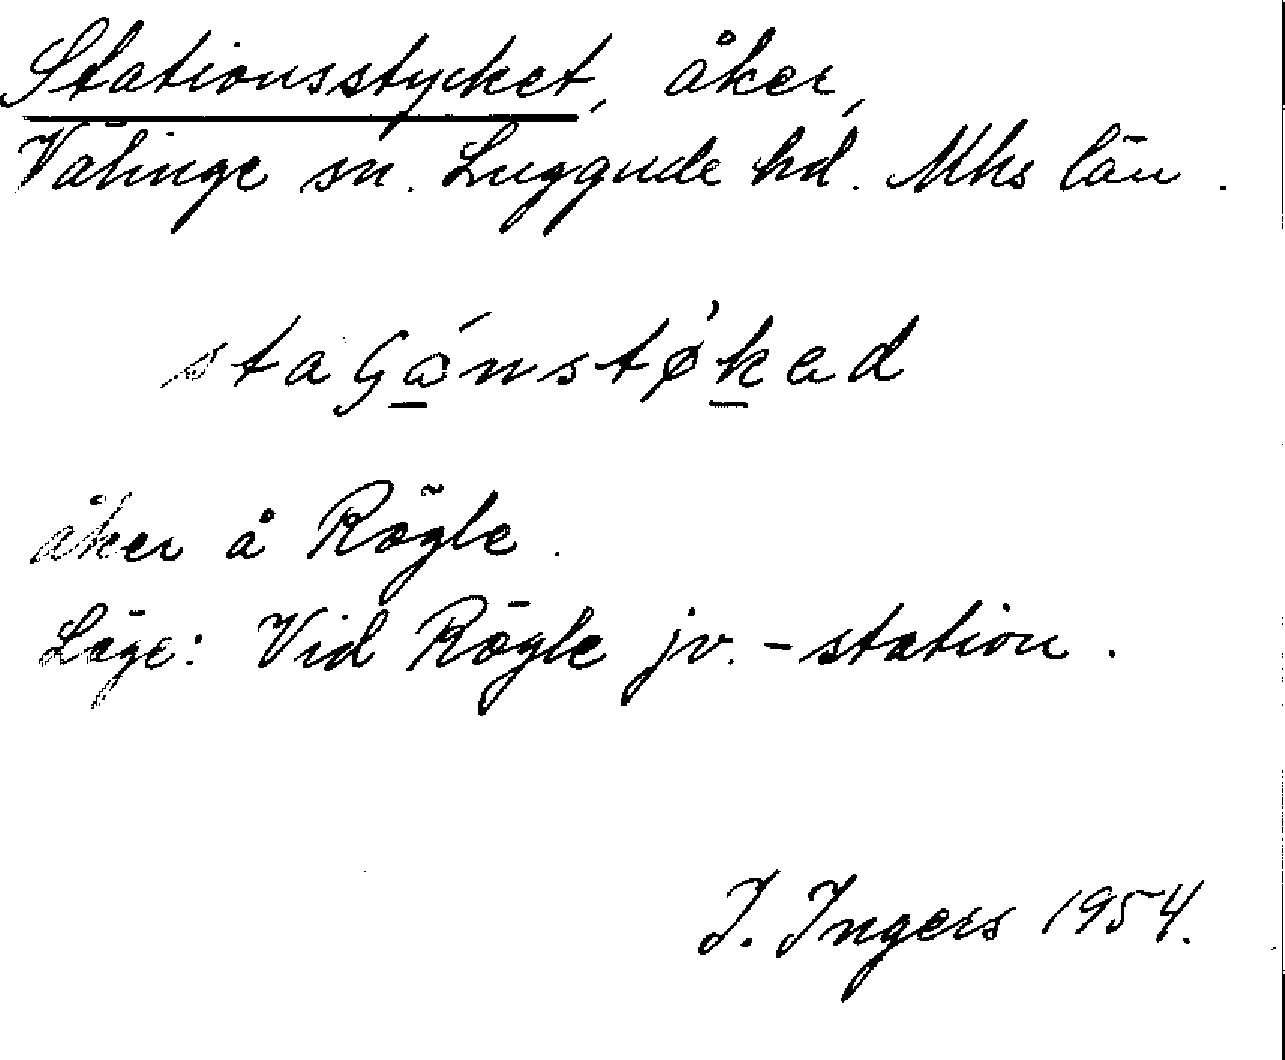 Stationsstycket, åker,
Välinge sn. Luggude hd. Mhs län.
staGó̱nstø̀ḵad
åker å Rögle.
Läge: Vid Rögle jv.-station.
I. Ingers 1954.